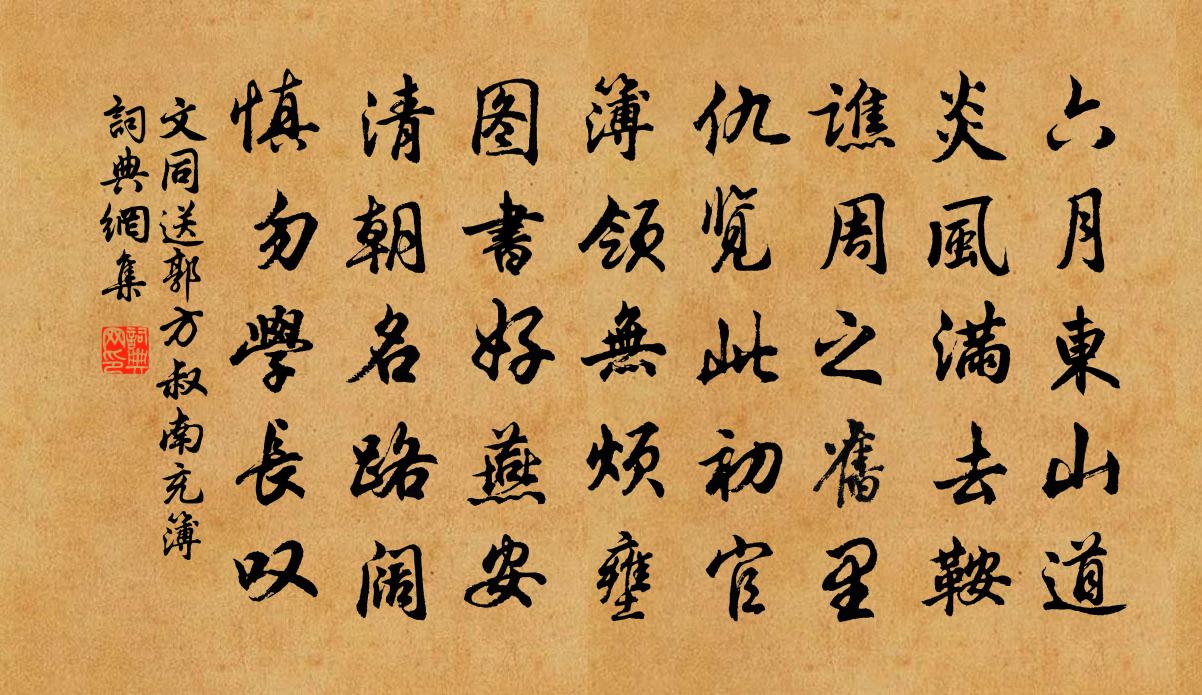 六月東山道
炎風满去鞍
譙周之舊里
仇览此初官
簿領無烦壅
图書好燕安
清朝名路阔
慎勿學長叹
文同送郭方叔南充簿
詞典網集
詞典
网印